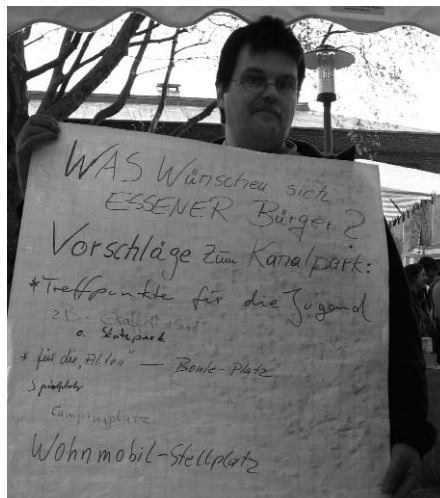 WAS Wünschen sich
ESSENER Bürger?
Vorschläge zum Kanalpark:
*Treffpunkte für die Jugend
z.B. Graffiti-Wand
o. Skatepark
* für die „Alten" — Boule-Platz
Spielplatz
Campingplatz
Wohnmobil-Stellplatz